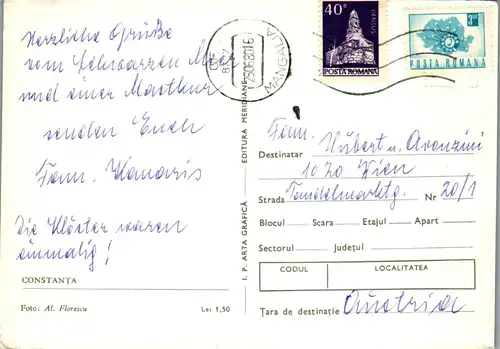 Herzliche Grüße
vom schwarzen Meer
und einer Mastkur
senden Euch
Fam.
Die Klöster waren
einmalig!
CONSTANȚA
Foto: Al. Florescu
Lei 1,50
I. P. ARTA GRAFICĂ
EDITURA MERIDIANE
MANGALIA
40
DENSUS
POSTA ROMANA
3
POSTA ROMANA
Fam. Hubert u.
Destinatar
1020 Wien
Strada
Nr 20/1
Blocul Scara Etajul Apart
Sectorul Județul
CODUL LOCALITATEA
Țara de destinație Austria